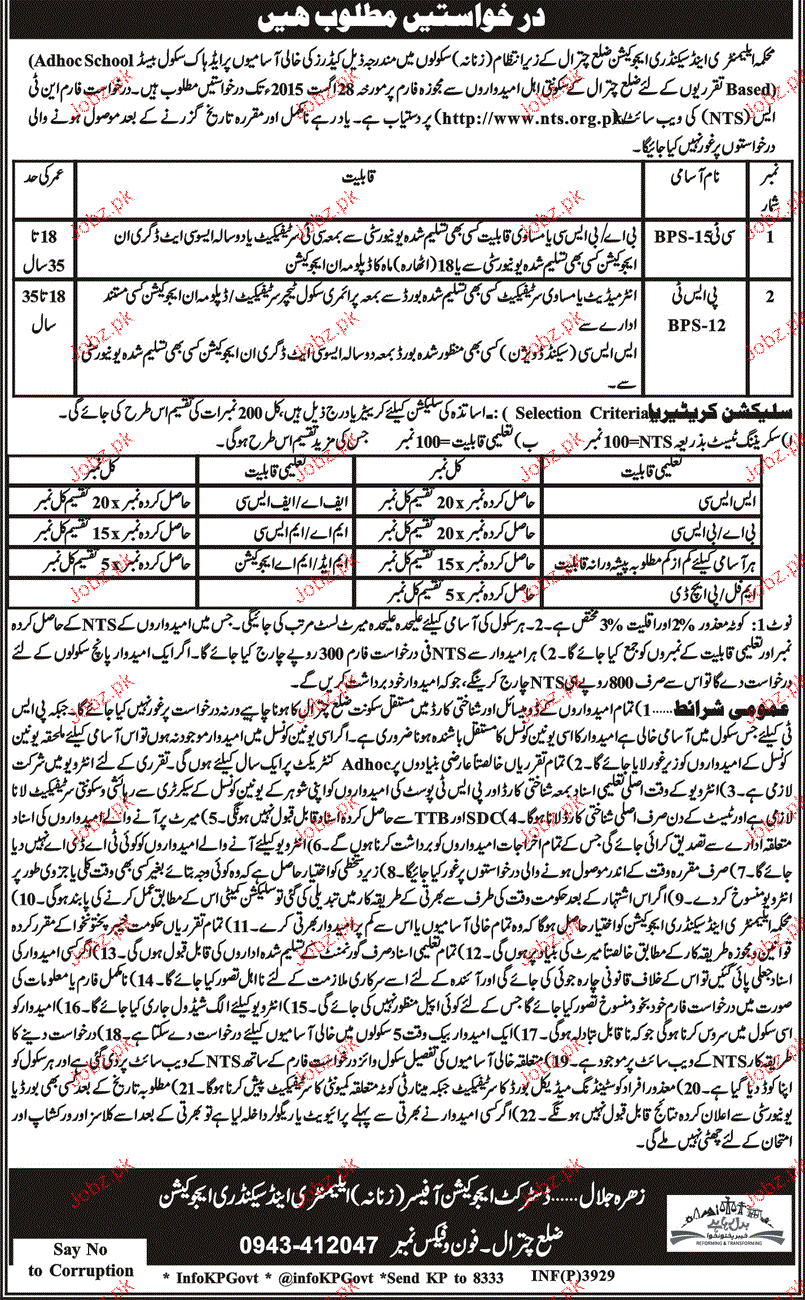 درخواستیں مطلوب ہیں
محکمہ ایلیمنٹری اینڈ سیکنڈری ایجوکیشن ضلع چترال کے زیر انتظام (زنانہ) سکولوں میں مندرجہ ذیل کیڈرز کی خالی آسامیوں پر ایڈہاک سکول بیسڈ (Adhoc School
Based) تقرریوں کے لئے ضلع چترال کے سکونتی اہل امیدواروں سے مجوزہ فارم پر مورخہ 28 اگست 2015ء تک درخواستیں مطلوب ہیں۔ درخواست فارم این ٹی
ایس (NTS) کی ویب سائٹ (http://www.nts.org.pk) پر دستیاب ہے۔ یاد رہے نامکمل اور مقررہ تاریخ گزرنے کے بعد موصول ہونے والی
درخواستوں پر غور نہیں کیا جائیگا۔
نمبر شمار نام آسامی قابلیت عمر کی حد
1 سی ٹی BPS-15 بی اے/بی ایس سی یا مساوی قابلیت کسی بھی تسلیم شدہ یونیورسٹی سے بمعہ سی ٹی سرٹیفکیٹ یا دو سالہ ایسوسی ایٹ ڈگری ان 18 تا
ایجوکیشن کسی بھی تسلیم شدہ یونیورسٹی سے یا 18 (اٹھارہ) ماہ کا ڈپلومہ ان ایجوکیشن 35 سال
2 پی ایس ٹی BPS-12 انٹرمیڈیٹ یا مساوی سرٹیفکیٹ کسی بھی تسلیم شدہ بورڈ سے بمعہ پرائمری سکول ٹیچر سرٹیفکیٹ/ڈپلومہ ان ایجوکیشن کسی مستند 18 تا 35
ادارے سے سال
ایس ایس سی (سیکنڈ ڈویژن) کسی بھی منظور شدہ بورڈ بمعہ دو سالہ ایسوسی ایٹ ڈگری ان ایجوکیشن کسی بھی تسلیم شدہ یونیورسٹی
سے۔
سلیکشن کریٹیریا (Selection Criteria):۔ اساتذہ کی سلیکشن کیلئے کریٹیریا درج ذیل ہیں، کل 200 نمبرات کی تقسیم اس طرح کی جائے گی۔
ا) سکریننگ ٹیسٹ بذریعہ NTS=100 نمبر ب) تعلیمی قابلیت=100 نمبر جس کی مزید تقسیم اس طرح ہوگی۔
تعلیمی قابلیت کل نمبر تعلیمی قابلیت کل نمبر
ایس ایس سی حاصل کردہ نمبر x 20 تقسیم کل نمبر ایف اے/ایف ایس سی حاصل کردہ نمبر x 20 تقسیم کل نمبر
بی اے/بی ایس سی حاصل کردہ نمبر x 20 تقسیم کل نمبر ایم اے/ایم ایس سی حاصل کردہ نمبر x 15 تقسیم کل نمبر
ہر آسامی کیلئے کم از کم مطلوبہ پیشہ ورانہ قابلیت حاصل کردہ نمبر x 15 تقسیم کل نمبر ایم ایڈ/ایم اے ایجوکیشن حاصل کردہ نمبر x 5 تقسیم کل نمبر
ایم فل/پی ایچ ڈی حاصل کردہ نمبر x 5 تقسیم کل نمبر
نوٹ 1: کوٹہ معذور 2% اور اقلیت 3% مختص ہے۔ 2۔ ہر سکول کی آسامی کیلئے علیحدہ علیحدہ میرٹ لسٹ مرتب کی جائیگی۔ جس میں امیدواروں کے NTS کے حاصل کردہ
نمبر اور تعلیمی قابلیت کے نمبروں کو جمع کیا جائے گا۔ 2) ہر امیدوار سے NTS فی درخواست فارم 300 روپے چارج کیا جائے گا۔ اگر ایک امیدوار پانچ سکولوں کے لئے
درخواست دے گا تو اس سے صرف 800 روپے ہی NTS چارج کرینگے، جو کہ امیدوار خود برداشت کریں گے۔
عمومی شرائط......1) تمام امیدواروں کے ڈومیسائل اور شناختی کارڈ میں مستقل سکونت ضلع چترال کا ہونا چاہیے ورنہ درخواست پر غور نہیں کیا جائے گا۔ جبکہ پی ایس
ٹی کیلئے جس سکول میں آسامی خالی ہے امیدوار کا اسی یونین کونسل کا مستقل باشندہ ہونا ضروری ہے۔ اگر اسی یونین کونسل میں امیدوار موجود نہ ہوں تو اس آسامی کیلئے ملحقہ یونین
کونسل کے امیدواروں کو زیر غور لایا جائے گا۔ 2) تمام تقرریاں خالصتاً عارضی بنیادوں پر Adhoc کنٹریکٹ پر ایک سال کیلئے ہوں گی۔ تقرری کے لئے انٹرویو میں شرکت
لازمی ہے۔ 3) انٹرویو کے وقت اصلی تعلیمی اسناد بمعہ شناختی کارڈ اور پی ایس ٹی پوسٹ کی امیدواروں کو اپنی شوہر کے یونین کونسل کے سیکرٹری سے رہائشی و سکونتی سرٹیفکیٹ لانا
لازمی ہے اور ٹیسٹ کے دن صرف اصلی شناختی کارڈ لانا ہوگا۔ 4) SDC اور TTB سے حاصل کردہ اسناد قابل قبول نہیں ہونگی۔ 5) میرٹ پر آنے والے امیدواروں کی اسناد
متعلقہ ادارے سے تصدیق کرائی جائے گی جس کے تمام اخراجات امیدواروں کو برداشت کرنا ہوں گے۔ 6) انٹرویو کیلئے آنے والے امیدواروں کو کوئی ٹی اے ڈی اے نہیں دیا
جائے گا۔ 7) صرف مقررہ وقت کے اندر موصول ہونے والی درخواستوں پر غور کیا جائیگا۔ 8) زیر دستخطی کو اختیار حاصل ہے کہ وہ کوئی وجہ بتائے بغیر کسی بھی وقت کلی یا جزوی طور پر
انٹرویو منسوخ کردے۔ 9) اگر اس اشتہار کے بعد حکومت وقت کی طرف سے بھرتی کے طریقہ کار میں تبدیلی کی گئی تو سلیکشن کمیٹی اس کے مطابق عمل کرنے کی پابند ہوگی۔ 10)
محکمہ ایلیمنٹری اینڈ سیکنڈری ایجوکیشن کو اختیار حاصل ہوگا کہ وہ تمام خالی آسامیوں یا اس سے کم پر امیدوار بھرتی کرے۔ 11) تمام تقرریاں حکومت خیبر پختونخوا کے مقرر کردہ
قوانین و مجوزہ طریقہ کار کے مطابق خالصتاً میرٹ کی بنیاد پر ہوں گی۔ 12) تمام تعلیمی اسناد صرف گورنمنٹ کے تسلیم شدہ اداروں کی قابل قبول ہوں گی۔ 13) اگر کسی امیدوار کی
اسناد جعلی پائی گئیں تو اس کے خلاف قانونی چارہ جوئی کی جائے گی اور آئندہ کے لئے اسے سرکاری ملازمت کے لئے نااہل تصور کیا جائے گا۔ 14) نامکمل فارم یا معلومات کی
صورت میں درخواست فارم خود بخود منسوخ تصور کیا جائے گا جس کے لئے کوئی اپیل منظور نہیں کی جائے گی۔ 15) انٹرویو کیلئے الگ شیڈول جاری کیا جائے گا۔ 16) امیدوار کو
اسی سکول میں سروس کرنا ہوگی جو کہ ناقابل تبادلہ ہوگی۔ 17) ایک امیدوار بیک وقت 5 سکولوں میں خالی آسامیوں کیلئے درخواست دے سکتا ہے۔ 18) درخواست دینے کا
طریقہ کار NTS کے ویب سائٹ پر موجود ہے۔ 19) متعلقہ خالی آسامیوں کی تفصیل سکول وائز درخواست فارم کے ساتھ NTS کے ویب سائٹ پر دی گئی ہے اور ہر سکول کو
اپنا کوڈ دیا گیا ہے۔ 20) معذور افراد کو سٹینڈنگ میڈیکل بورڈ کا سرٹیفکیٹ جبکہ مینارٹی کوٹہ متعلقہ کمیونٹی کا سرٹیفکیٹ پیش کرنا ہوگا۔ 21) مطلوبہ تاریخ کے بعد کسی بھی بورڈ یا
یونیورسٹی سے اعلان کردہ نتائج قابل قبول نہیں ہونگے۔ 22) اگر کسی امیدوار نے بھرتی سے پہلے پرائیویٹ یا ریگولر داخلہ لیا ہے تو بھرتی کے بعد اسے کلاسز اور ورکشاپ اور
امتحان کے لئے چھٹی نہیں ملے گی۔
زھرہ جلال......ڈسٹرکٹ ایجوکیشن آفیسر (زنانہ) ایلیمنٹری اینڈ سیکنڈری ایجوکیشن
ضلع چترال۔ فون و فیکس نمبر 0943-412047
Say No
to Corruption
خیبر پختونخوا
REFORMING & TRANSFORMING
* InfoKPGovt * @infoKPGovt *Send KP to 8333
INF(P)3929
Jobz.pk